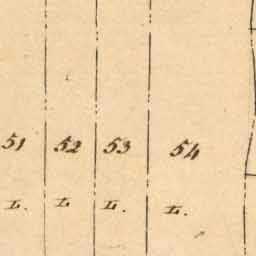 51 52 53 54
L. L L. L.